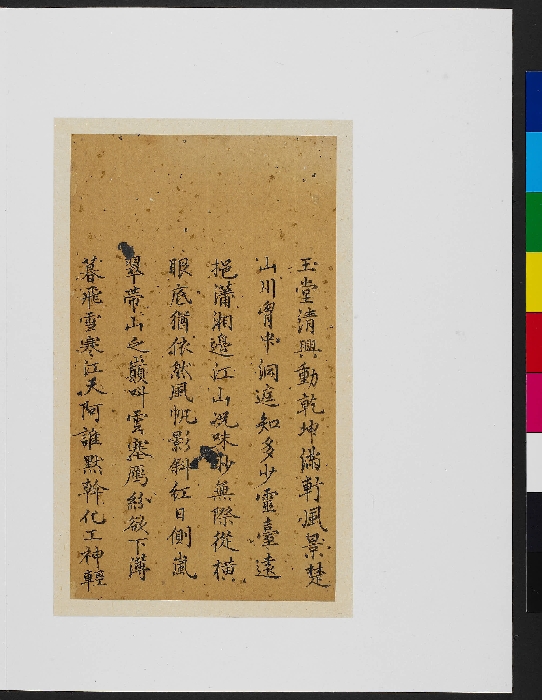 玉堂清興動乾坤滿軒風景楚
山川胷中洞庭知多少靈臺遠
挹瀟湘邊江山況味妙無際從橫
眼底猶依然風帆影斜紅日側嵐
翠帶山之巔叫雲塞鴈紛欲下薄
暮飛雪寒江天阿誰默斡化工神輕